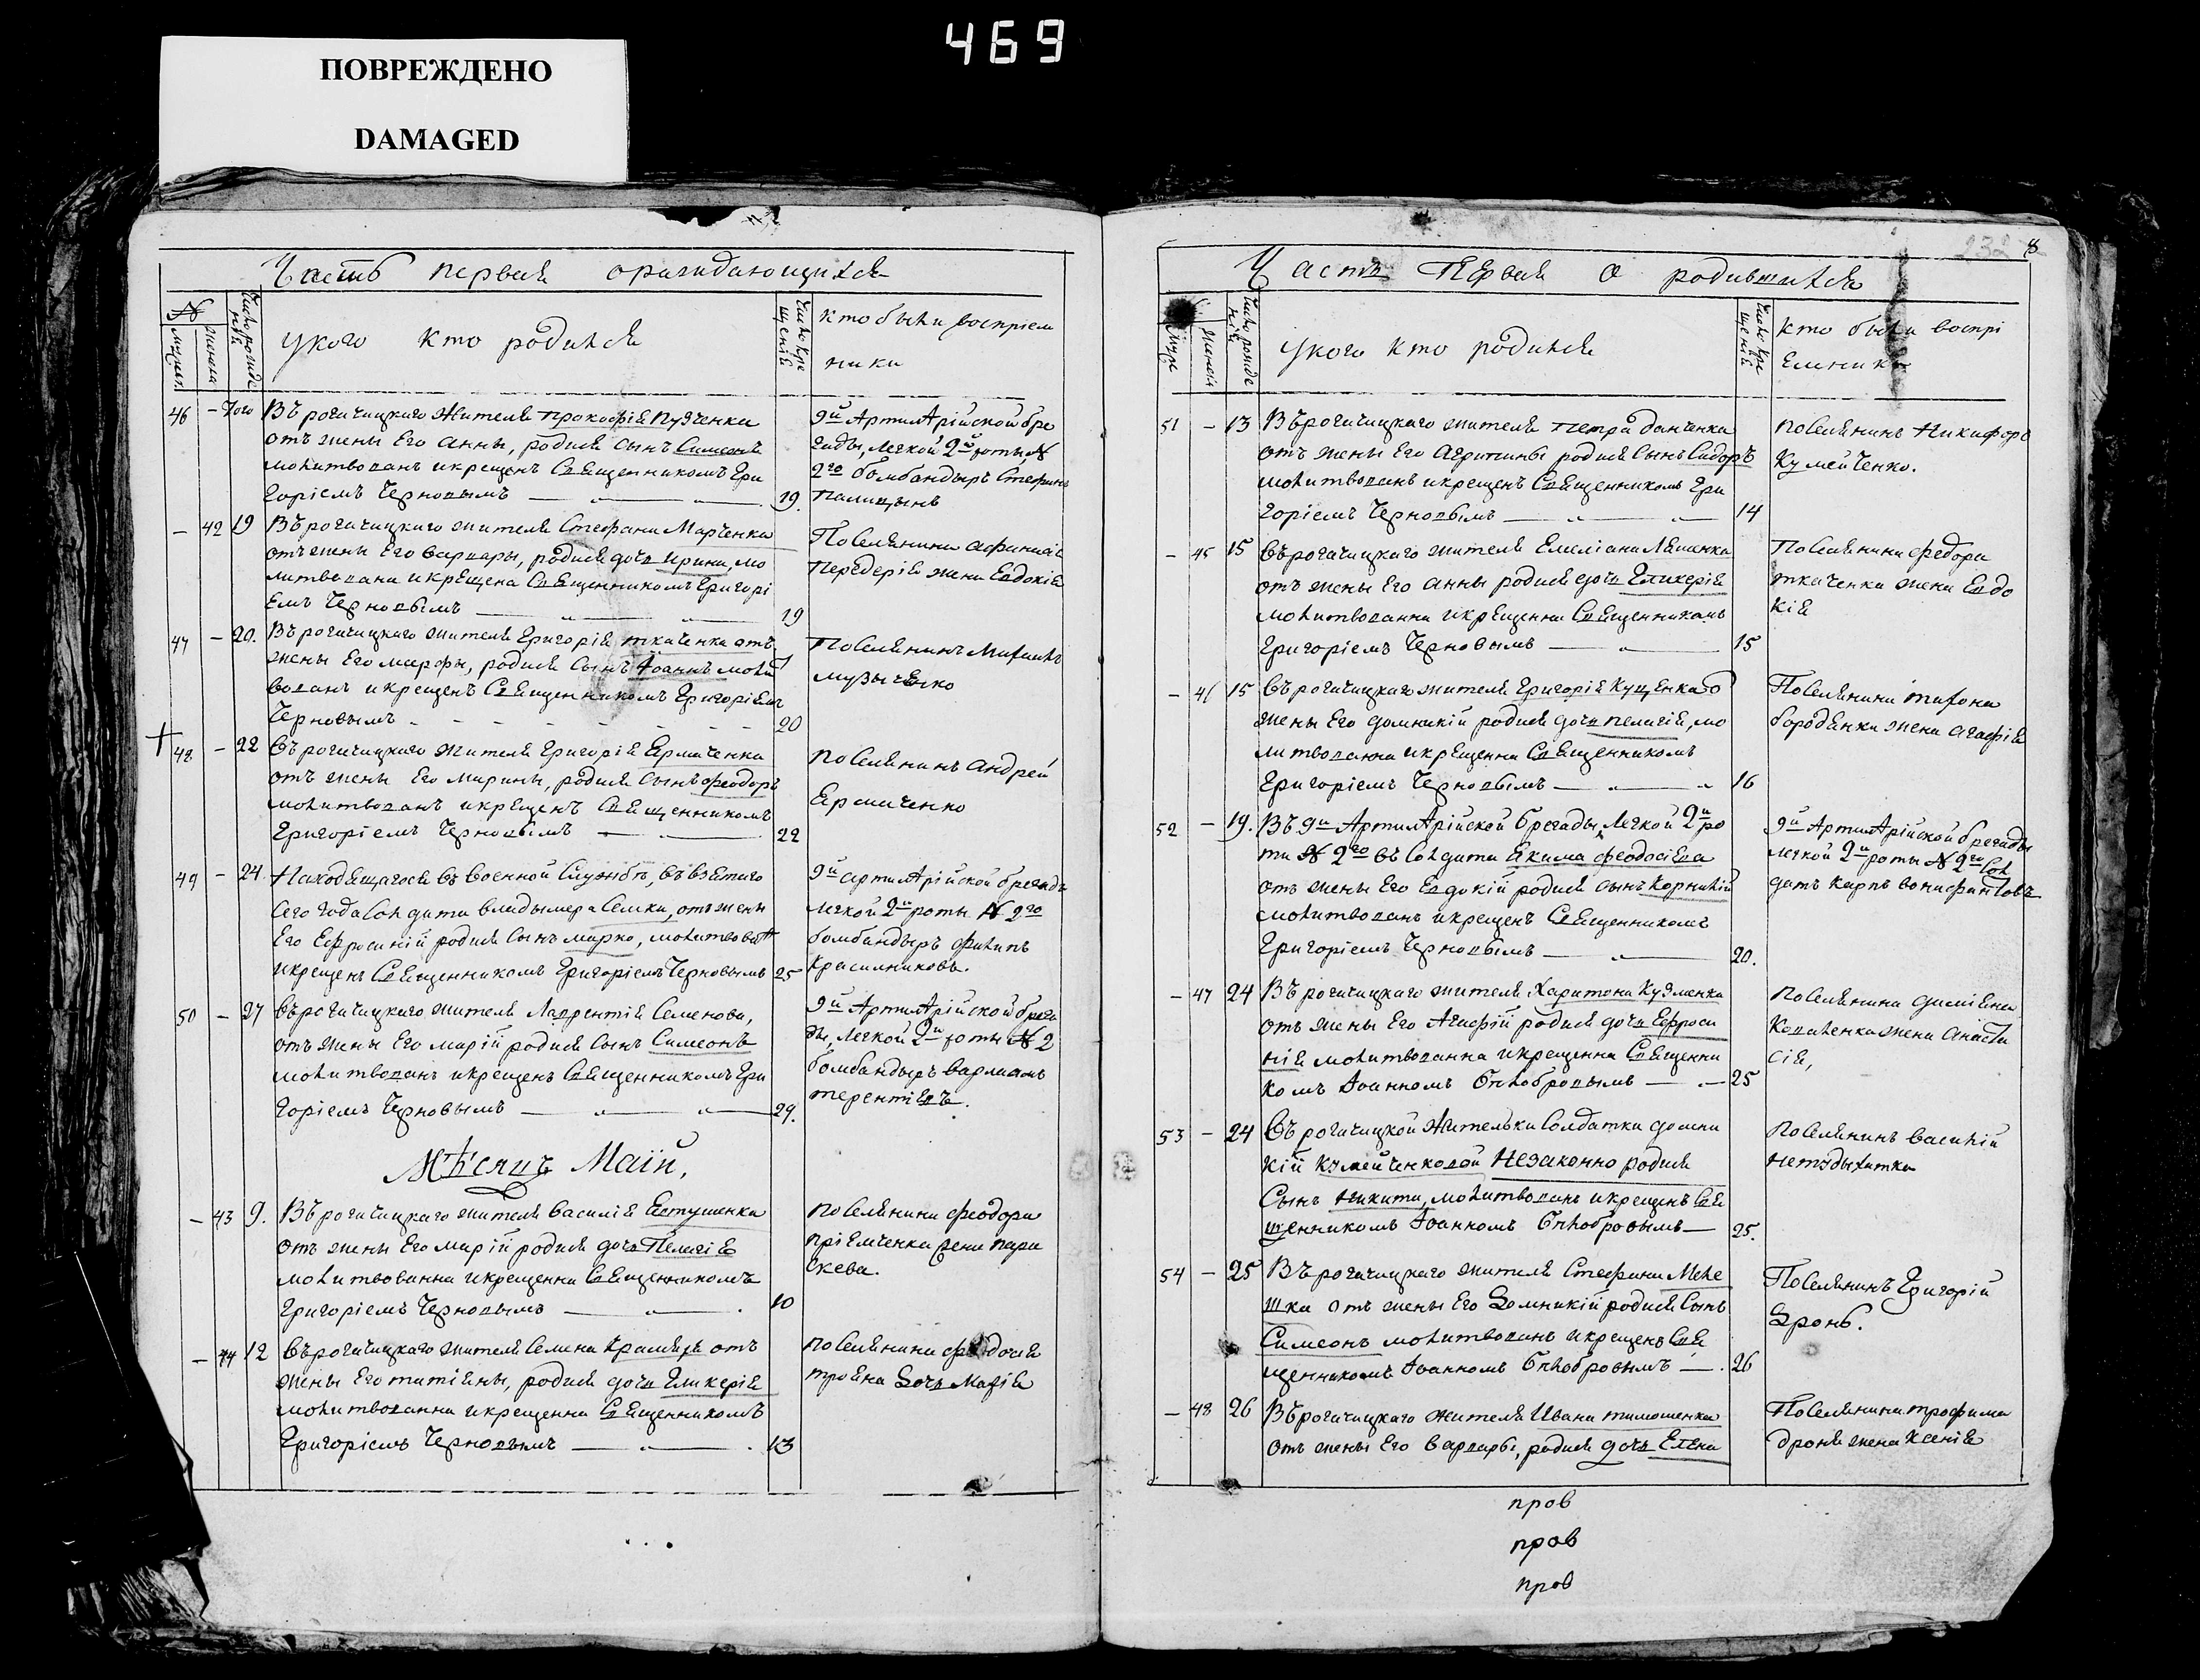 469
ПОВРЕЖДЕНО
DAMAGED
Часть первая ораждающихся
№
мужеск
женска
Число рожде
нія
укого кто родился
Число кре
щенія
кто были воспріем
ники
46 - 7ого Въ рогачицкаго жителя прокофія Пузченка
отъ жены Его анны, родися сынъ Симеонъ
молитвованъ икрещенъ Священникомъ Гри
горіемъ Черновымъ 19.
9й АртилАрійской бре
гады, легкой 2й роты, №
2го бомбандыръ Стефанъ
Палицынъ
- 42 19 Въ рогачицкаго жителя Стефана Марченка
отъ жены Его варвары, родися дочь ирина, мо
литвована икрещена Священникомъ Григорі
емъ Черновымъ 19
Поселянина афанасія
Передерія жена Евдокія
47 - 20. Въ рогачицкаго жителя Григорія ткаченка отъ
жены Его марфы, родися сынъ Іоаннъ молит
вованъ икрещенъ Священникомъ Григоріемъ
Черновымъ 20
Поселянинъ Михаилъ
музыченко
48 - 22 Въ рогачицкаго жителя Григорія Ермаченка
отъ жены Его марины, родися сынъ феодоръ
молитвованъ икрещенъ Священникомъ
Григоріемъ Черновымъ 22
поселянинъ андрей
Ермаченко
49 - 24 Находящагося въ военной Службѣ, въ взятаго
сего года солдата владымера Семки, отъ жены
Его Ефросиній родися сынъ марко, молитвован
икрещенъ Священникомъ Григоріемъ Черновымъ 25
9й артилАрійской брегады
легкой 2й роты № 2го
бомбандыръ филипъ
красилниковъ.
50 - 27 Въ рогачицкаго жителя Лаврентія Семенова,
отъ жены Его марій родися сынъ Симеонъ
молитвованъ икрещенъ Священникомъ Гри
горіемъ Черновымъ 29.
9й АртилАрійской брега
ды, легкой 2й роты № 2
бомбандыръ варлаамъ
терентіевъ.
Мѣсяцъ Маій,
- 43 9. Въ рогачицкаго жителя василія Евтушенка
отъ жены Его марій родися дочь Пелагія
молитвованна икрещенна Священникомъ
Григоріемъ Черновымъ 10
поселянина феодора
пріемченка жена пара
скева.
- 44 12 Въ рогачицкаго жителя Семена Крамаря отъ
жены Его татіаны, родися дочь Гликерія
молитвованна икрещенна Священникомъ
Григоріемъ Черновымъ 13
поселянина феодосія
трояна дочь Марія
8
Часть Первая о родившихся
муже
женска
Число рожде
нія
укого кто родился
Число кре
щенія
кто были воспрі
емники
51 - 13 Въ рогачицкаго жителя петра данченка
отъ жены Его агрипины родися сынъ Сидоръ
молитвованъ икрещенъ Священникомъ Гри
горіемъ Черновымъ 14
поселянинъ Никифоръ
Кумейченко.
- 45 15 Въ рогачицкаго жителя Емеліана Ляшенка
отъ жены Его анны родися дочь Гликерія
молитвованна икрещенна Священникомъ
Григоріемъ Черновымъ 15
поселянина федора
ткаченка жена Евдо
кія
- 46 15 Въ рогачицкаго жителя Григорія Куценка о
жены Его домникій родися дочь пелагія, мо
литвованна икрещенна Священникомъ
Григоріемъ Черновымъ 16
Поселянина тихона
бородянки жена агафія
52 - 19. Въ 9й АртилАрійской брегады, легкой 2й ро
ты № 2го въ солдата Якима феодосіева
отъ жены Его Евдокій родися сынъ Корнилій
молитвованъ икрещенъ Священникомъ
Григоріемъ Черновымъ 20.
9й АртилАрійской брегады
легкой 2й роты № 2го Сол
датъ карпъ вонифантовъ
- 47 24 Въ рогачицкаго жителя Харитона Кузменка
отъ жены Его Агафій родися дочь Ефроси
нія молитвованна икрещенна Священни
комъ Іоанномъ Бѣлобровымъ 25
поселянина даміяна
Коваленка жена анаста
сія,
53 - 24 Въ рогачицкой жительки солдатки домни
кій кумейченковой незаконно родися
Сынъ никита, молитвованъ икрещенъ Свя
щенникомъ Іоанномъ Бѣлобровымъ 25.
поселянинъ василій
54 - 25 Въ рогачицкаго жителя Стефана Меле
шка отъ жены Его домникій родися сынъ
Симеонъ молитвованъ икрещенъ Свя
щенникомъ Іоанномъ Бѣлобровымъ 26
Поселянинъ Григорій
дронь.
- 48 26 Въ рогачицкаго жителя Ивана тимошенка
отъ жены Его варвары, родися дочь Елена
Поселянина трофима
дроня жена ксенія
пров
пров
пров